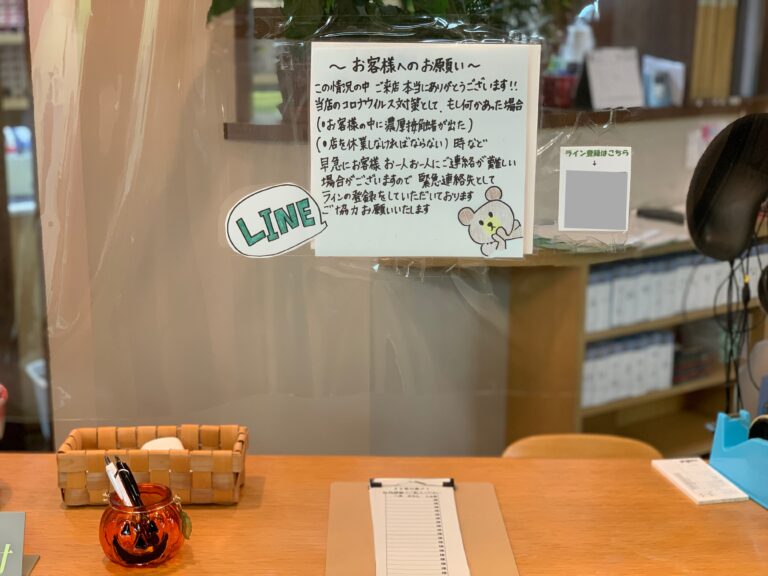 ～ お客様へのお願い ～
この情況の中 ご来店 本当にありがとうございます!!
当店のコロナウイルス対策として、もし何かあった場合
(•お客様の中に濃厚接触者が出た)
(•店を休業しなければならない) 時など
早急にお客様 お一人お一人にご連絡が難しい
場合がございますので 緊急連絡先として
ラインの登録をしていただいております
ご協力お願いいたします
LINE
ライン登録はこちら
↓